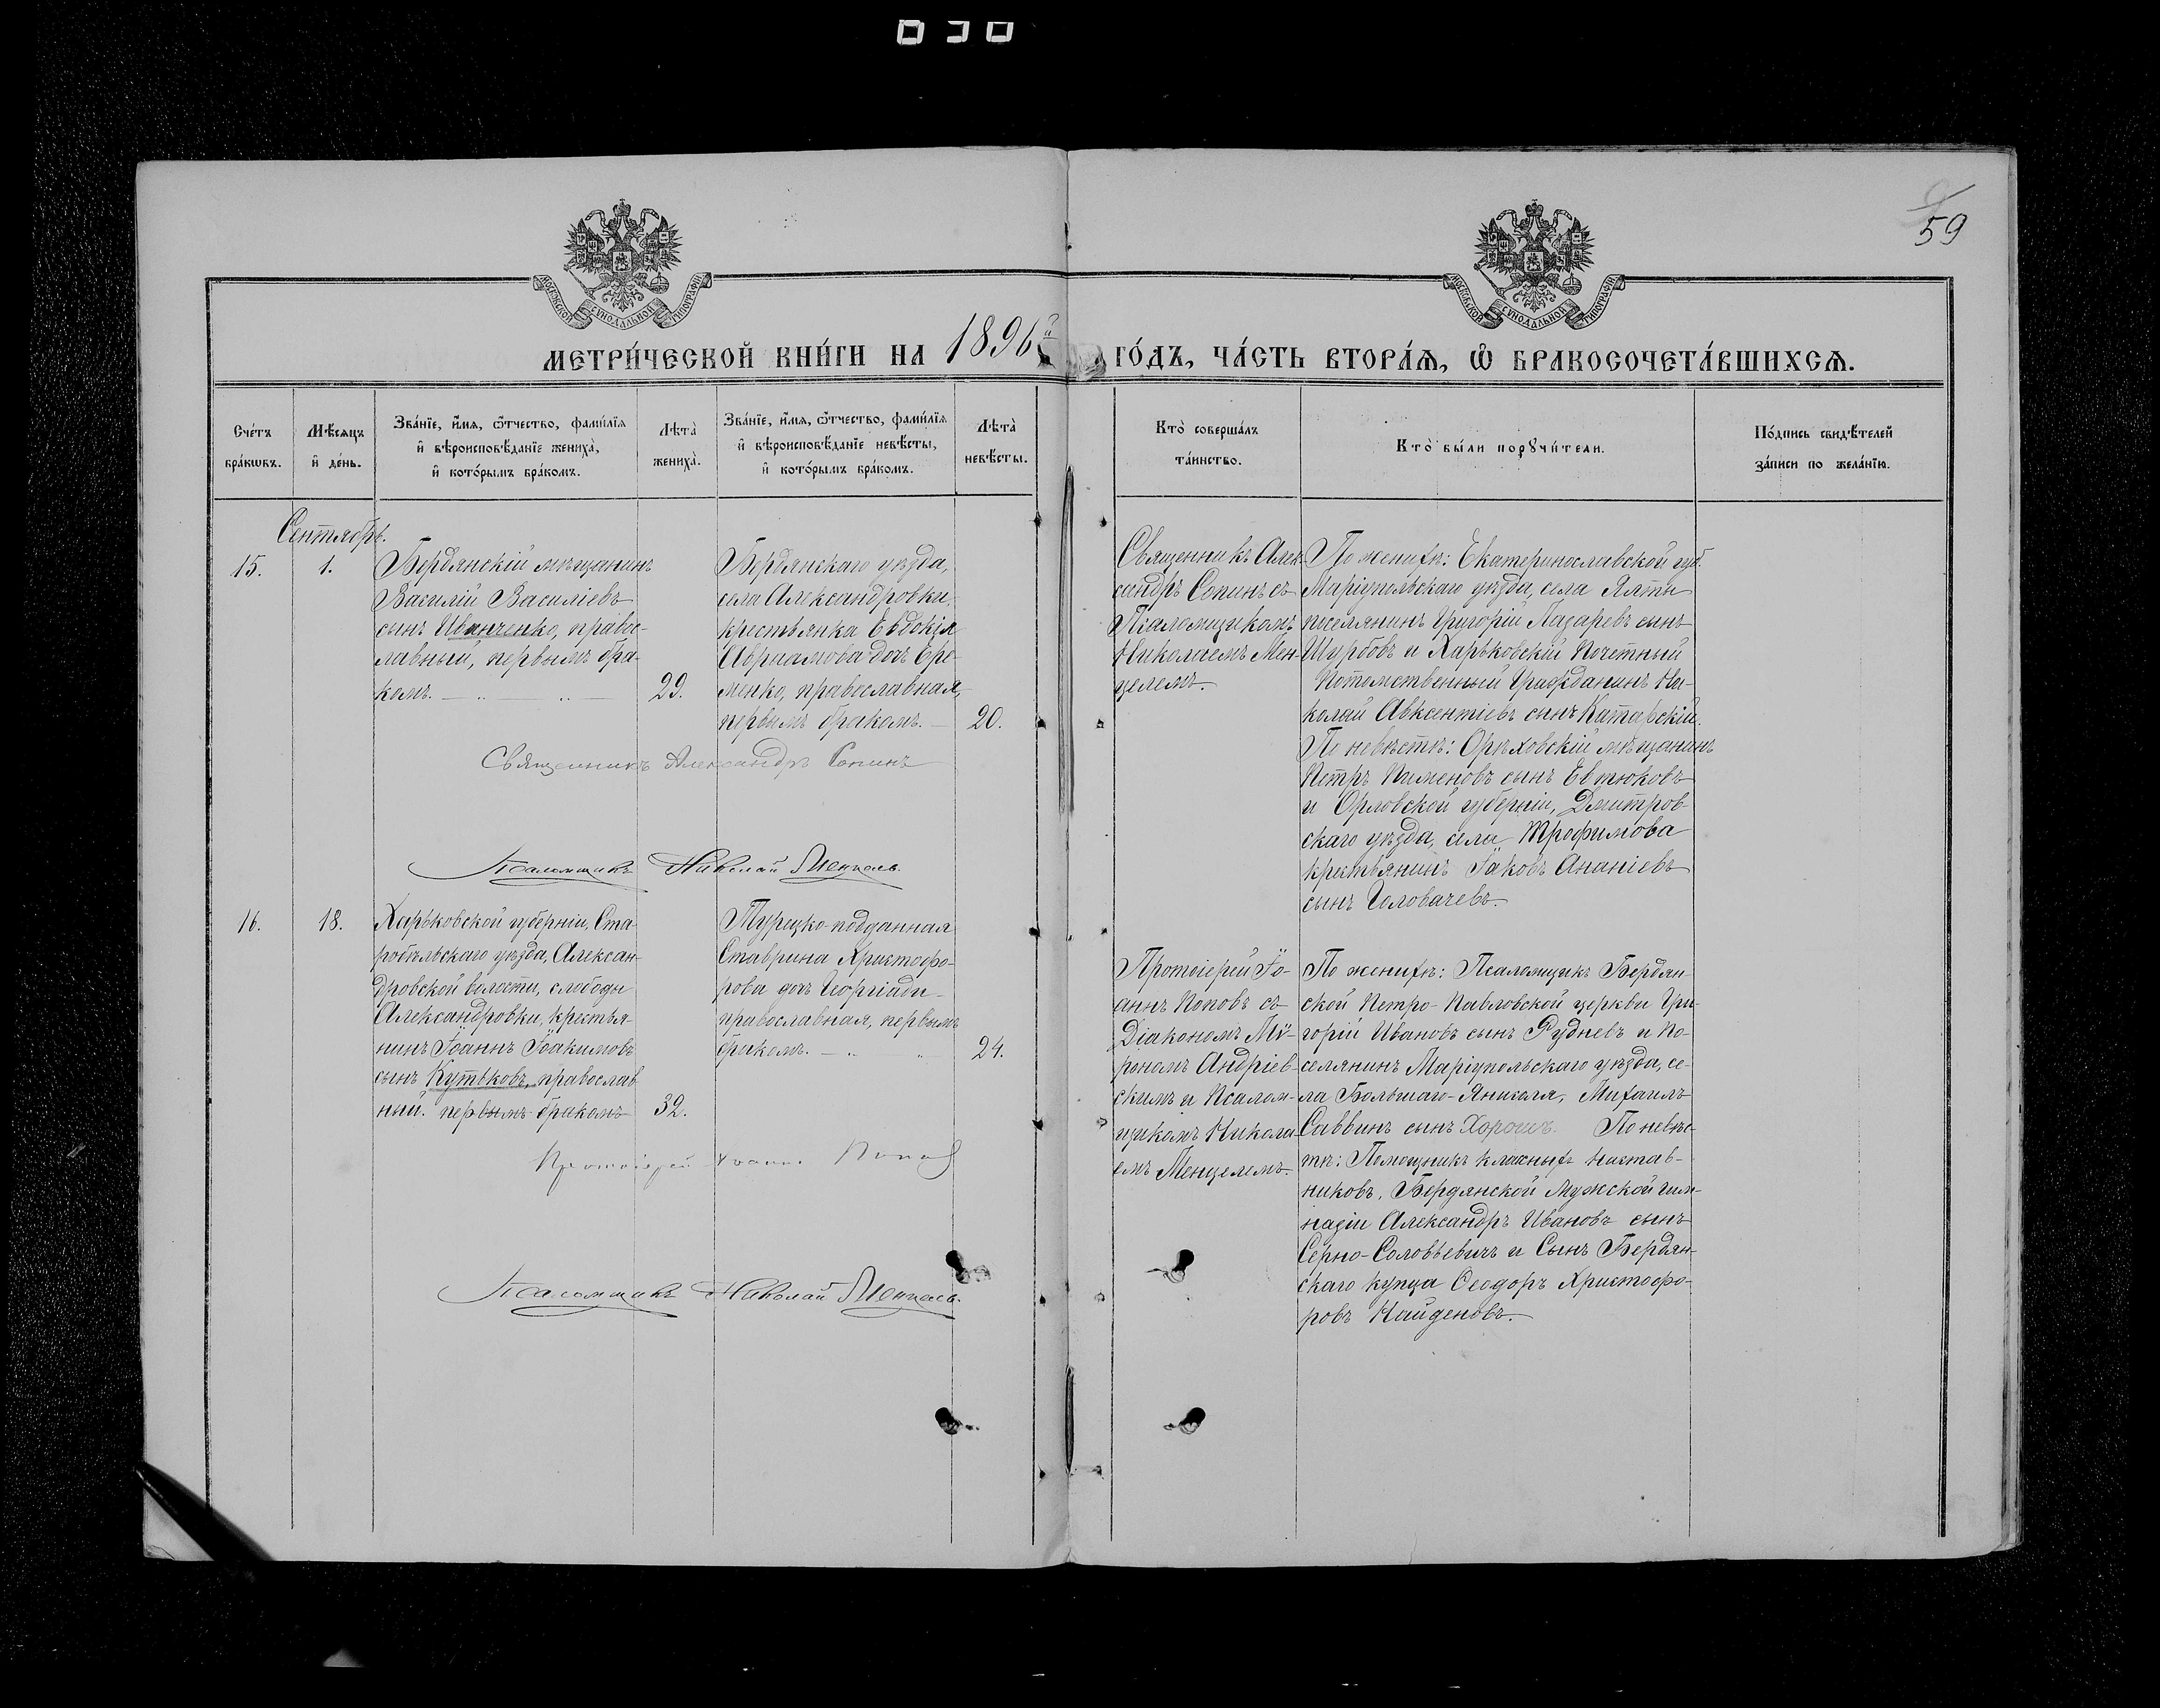 030
59
МОСКОВСКОЙ СѴНОДАЛЬНОЙ ТИПОГРАФІИ
МОСКОВСКОЙ СѴНОДАЛЬНОЙ ТИПОГРАФІИ
МЕТРИ́ЧЕСКОЙ КНИ́ГИ НА 1896й ГО́ДЪ, ЧА́СТЬ ВТОРА́Ѧ, Ѽ БРАКОСОЧЕТА́ВШИХСѦ.
Сче́тъ
бра́кѡвъ.
Мѣ́сяцъ
и҆ де́нь.
Зва́нїе, и҆́мѧ, ѻ҆́тчество, фами́лїѧ
и҆ вѣроисповѣ́данїе жениха̀,
и҆ кото́рымъ бра́комъ.
Лѣ́та
жениха̀.
Зва́нїе, и҆́мѧ, ѻ҆́тчество, фами́лїѧ
и҆ вѣроисповѣ́данїе невѣ́сты,
и҆ кото́рымъ бра́комъ.
Лѣ́та
невѣ́сты.
Кто̀ соверша́лъ
та́инство.
Кто̀ бы́ли порꙋчи́тели.
По́дпись свидѣ́телей
за́писи по жела́нїю.
Сентябрь.
15.
1.
Бердянскій мѣщанинъ
Василій Василіевъ
сынъ Иванченко, правос-
лавный, первымъ бра-
комъ.
29.
Бердянскаго уѣзда,
села Александровки,
крестьянка Евдокія
Авраамова дочь Ере-
менко, православная,
первымъ бракомъ.
20.
Священникъ Александръ Сопинъ
Псаломщикъ Николай Менцель.
Священникъ Алек-
сандръ Сопинъ съ
Псаломщикомъ
Николаемъ Мен-
целемъ.
По женихѣ: Екатеринославской губ.
Маріупольскаго уѣзда, села Ялты
поселянинъ Григорій Лазаревъ сынъ
Шурбовъ и Харьковскій Почетный
Потомственный Гражданинъ Ни-
колай Авксентіевъ сынъ Катарскій.
По невѣстѣ: Орѣховскій мѣщанинъ
Петръ Пименовъ сынъ Евтюковъ
и Орловской губерніи, Дмитров-
скаго уѣзда, села Трофимова
крестьянинъ Іаковъ Ананіевъ
сынъ Головачевъ.
16.
18.
Харьковской губерніи, Ста-
робѣльскаго уѣзда, Алексан-
дровской волости, слободы
Александровки, крестья-
нинъ Іоаннъ Іоакимовъ
сынъ Кутьковъ, православ-
ный. первымъ бракомъ
32.
Турецко-подданная
Ставрина Христофо-
рова дочь Георгіади-
православная, первымъ
бракомъ.
24.
Протоіерей Іоаннъ Поповъ
Псаломщикъ Николай Менцель.
Протоіерей Іо-
аннъ Поповъ съ
Діакономъ Мѵ-
рономъ Андріев-
скимъ и Псалом-
щикомъ Никола-
емъ Менцелемъ.
По женихѣ: Псаломщикъ Бердян-
ской Петро-Павловской церкви Гри-
горій Ивановъ сынъ Рудневъ и По-
селянинъ Маріупольскаго уѣзда, се-
ла Большаго-Яникоя, Михаилъ
Саввинъ сынъ Хорошъ. По невѣс-
тѣ: Помощникъ классныхъ Настав-
никовъ, Бердянской Мужской гим-
назіи Александръ Ивановъ сынъ
Серно-Соловьевичъ и Сынъ Бердян-
скаго купца Ѳеодоръ Христофо-
ровъ Найденовъ.